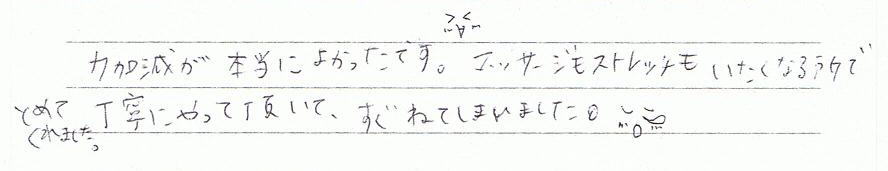 力加減が本当によかったです。マッサージもストレッチもいたくなる寸前で
とめてくれました。
丁寧にやって頂いて、すぐねてしまいました。